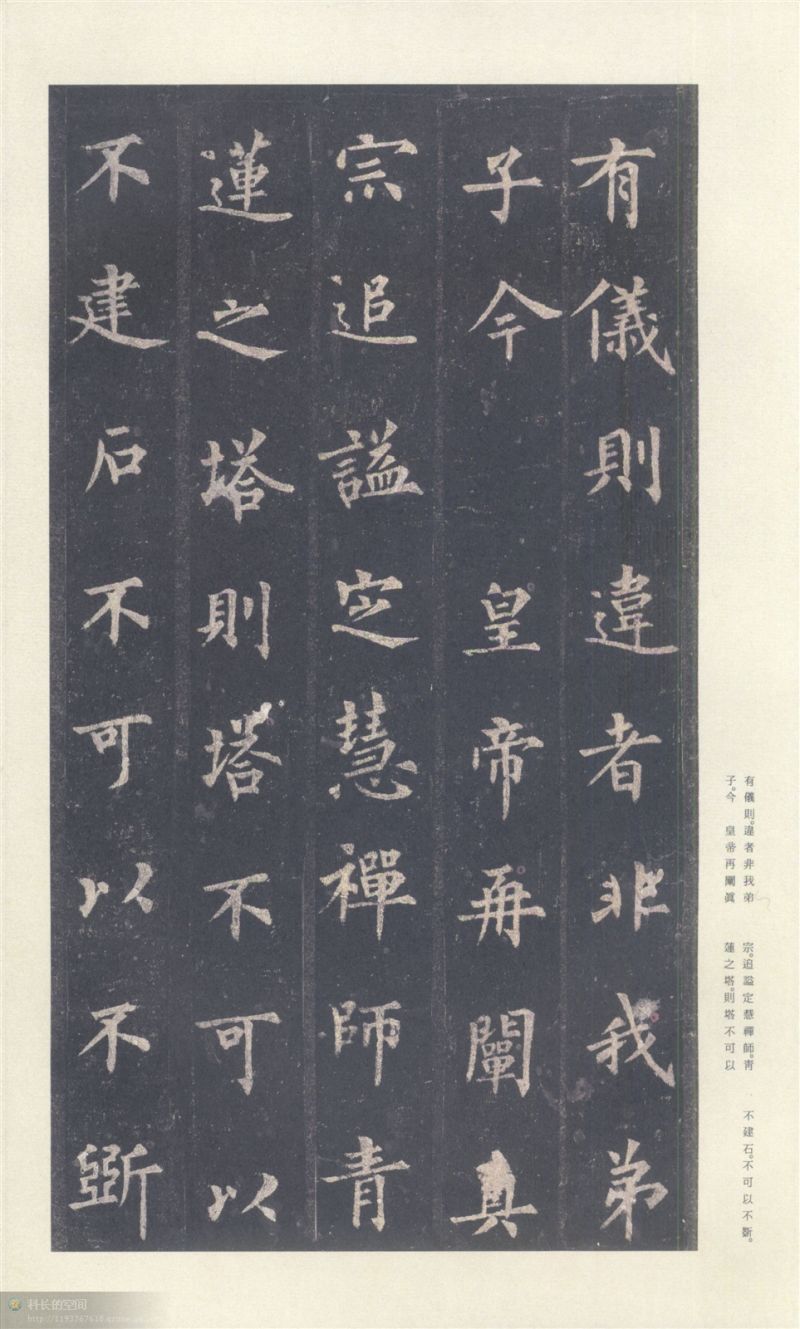 有儀則違者非我弟
子今 皇帝再闡真
宗追謚定慧禪師青
蓮之塔則塔不可以
不建石不可以不斲
有儀則。違者非我弟
子。今 皇帝再闡眞
宗。追謚定慧禪師。青
蓮之塔。則塔不可以
不建石。不可以不斲。
科长的空间